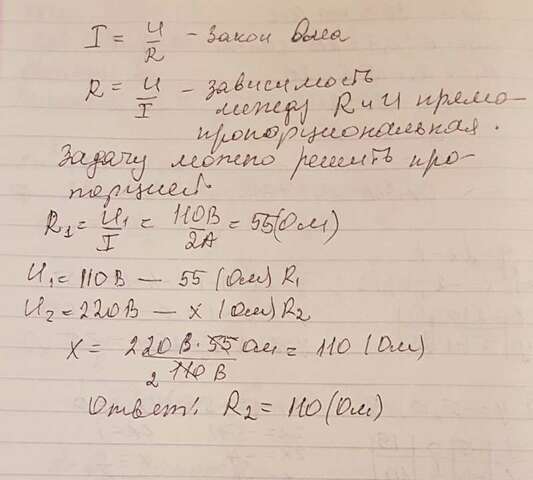 I = U/R - Закон Ома
R = U/I - зависимость
между R и U прямо-
пропорциональная.
Задачу можно решить про-
порцией.
R₁ = U₁/I = 110В/2А = 55(Ом)
U₁ = 110В — 55 (Ом) R₁
U₂ = 220В — x (Ом) R₂
X = 220В · 55 Ом / 110 В = 110 (Ом)
2
Ответ: R₂ = 110 (Ом)